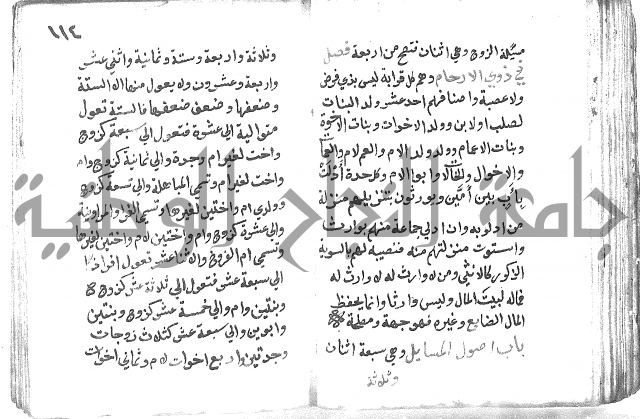 مسئلة الزوج وهي اثنان نتصح من اربعة فصل
في ذوي الارحام وهم كل قرابة ليس بذي فرض
ولا عصبة واصنافهم احد عشر ولد البنات
لصلب او لابن وولد الاخوات وبنات الاخوة
وبنات الاعمام وولد ولد الام والعم لام والعمات
والاخوال والخالات وابو الام وكل جدة أدلت
بأب بين أمين ويورثون بتنزيلهم منزلة
من ادلوا به وان ادلى جماعة منهم بوارث
واستوت منزلتهم منه فنصيبه لهم بالسوية
الذكور كالانثى ومن لا وارث له
فماله لبيت المال وليس وارثا وانما يحفظ
المال الضايع وغيره فهو جهة ومصلحة
باب اصول المسايل وهي سبعة اثنان
وثلاثة
١١٤
وثلاثة واربعة وستة وثمانية واثني عشر
واربعة وعشرون ولا يعول منها الا الستة
وضعفها وضعف ضعفها فالستة تعول
متوالية الى عشرة فتعول الى سبعة كزوج
واخت لغير ام وجدة والى ثمانية كزوج وام
واخت لغير ام وتسمى المباهلة والى تسعة كزوج
وولدي ام واختين لغيرها وتسمى الغرا والمروانية
والى عشرة كزوج وام واختين لام واختين لغيرها
وتسمى ام الفروخ والاثنا عشر تعول افرادا
الى سبعة عشر فتعول الى ثلاثة عشر كزوج
وبنتين وام والى خمسة عشر كزوج وبنتين
وابوين والى سبعة عشر كثلاث زوجات
وجدتين واربع اخوات لام وثماني اخوات
جامعة النجاح الوطنية